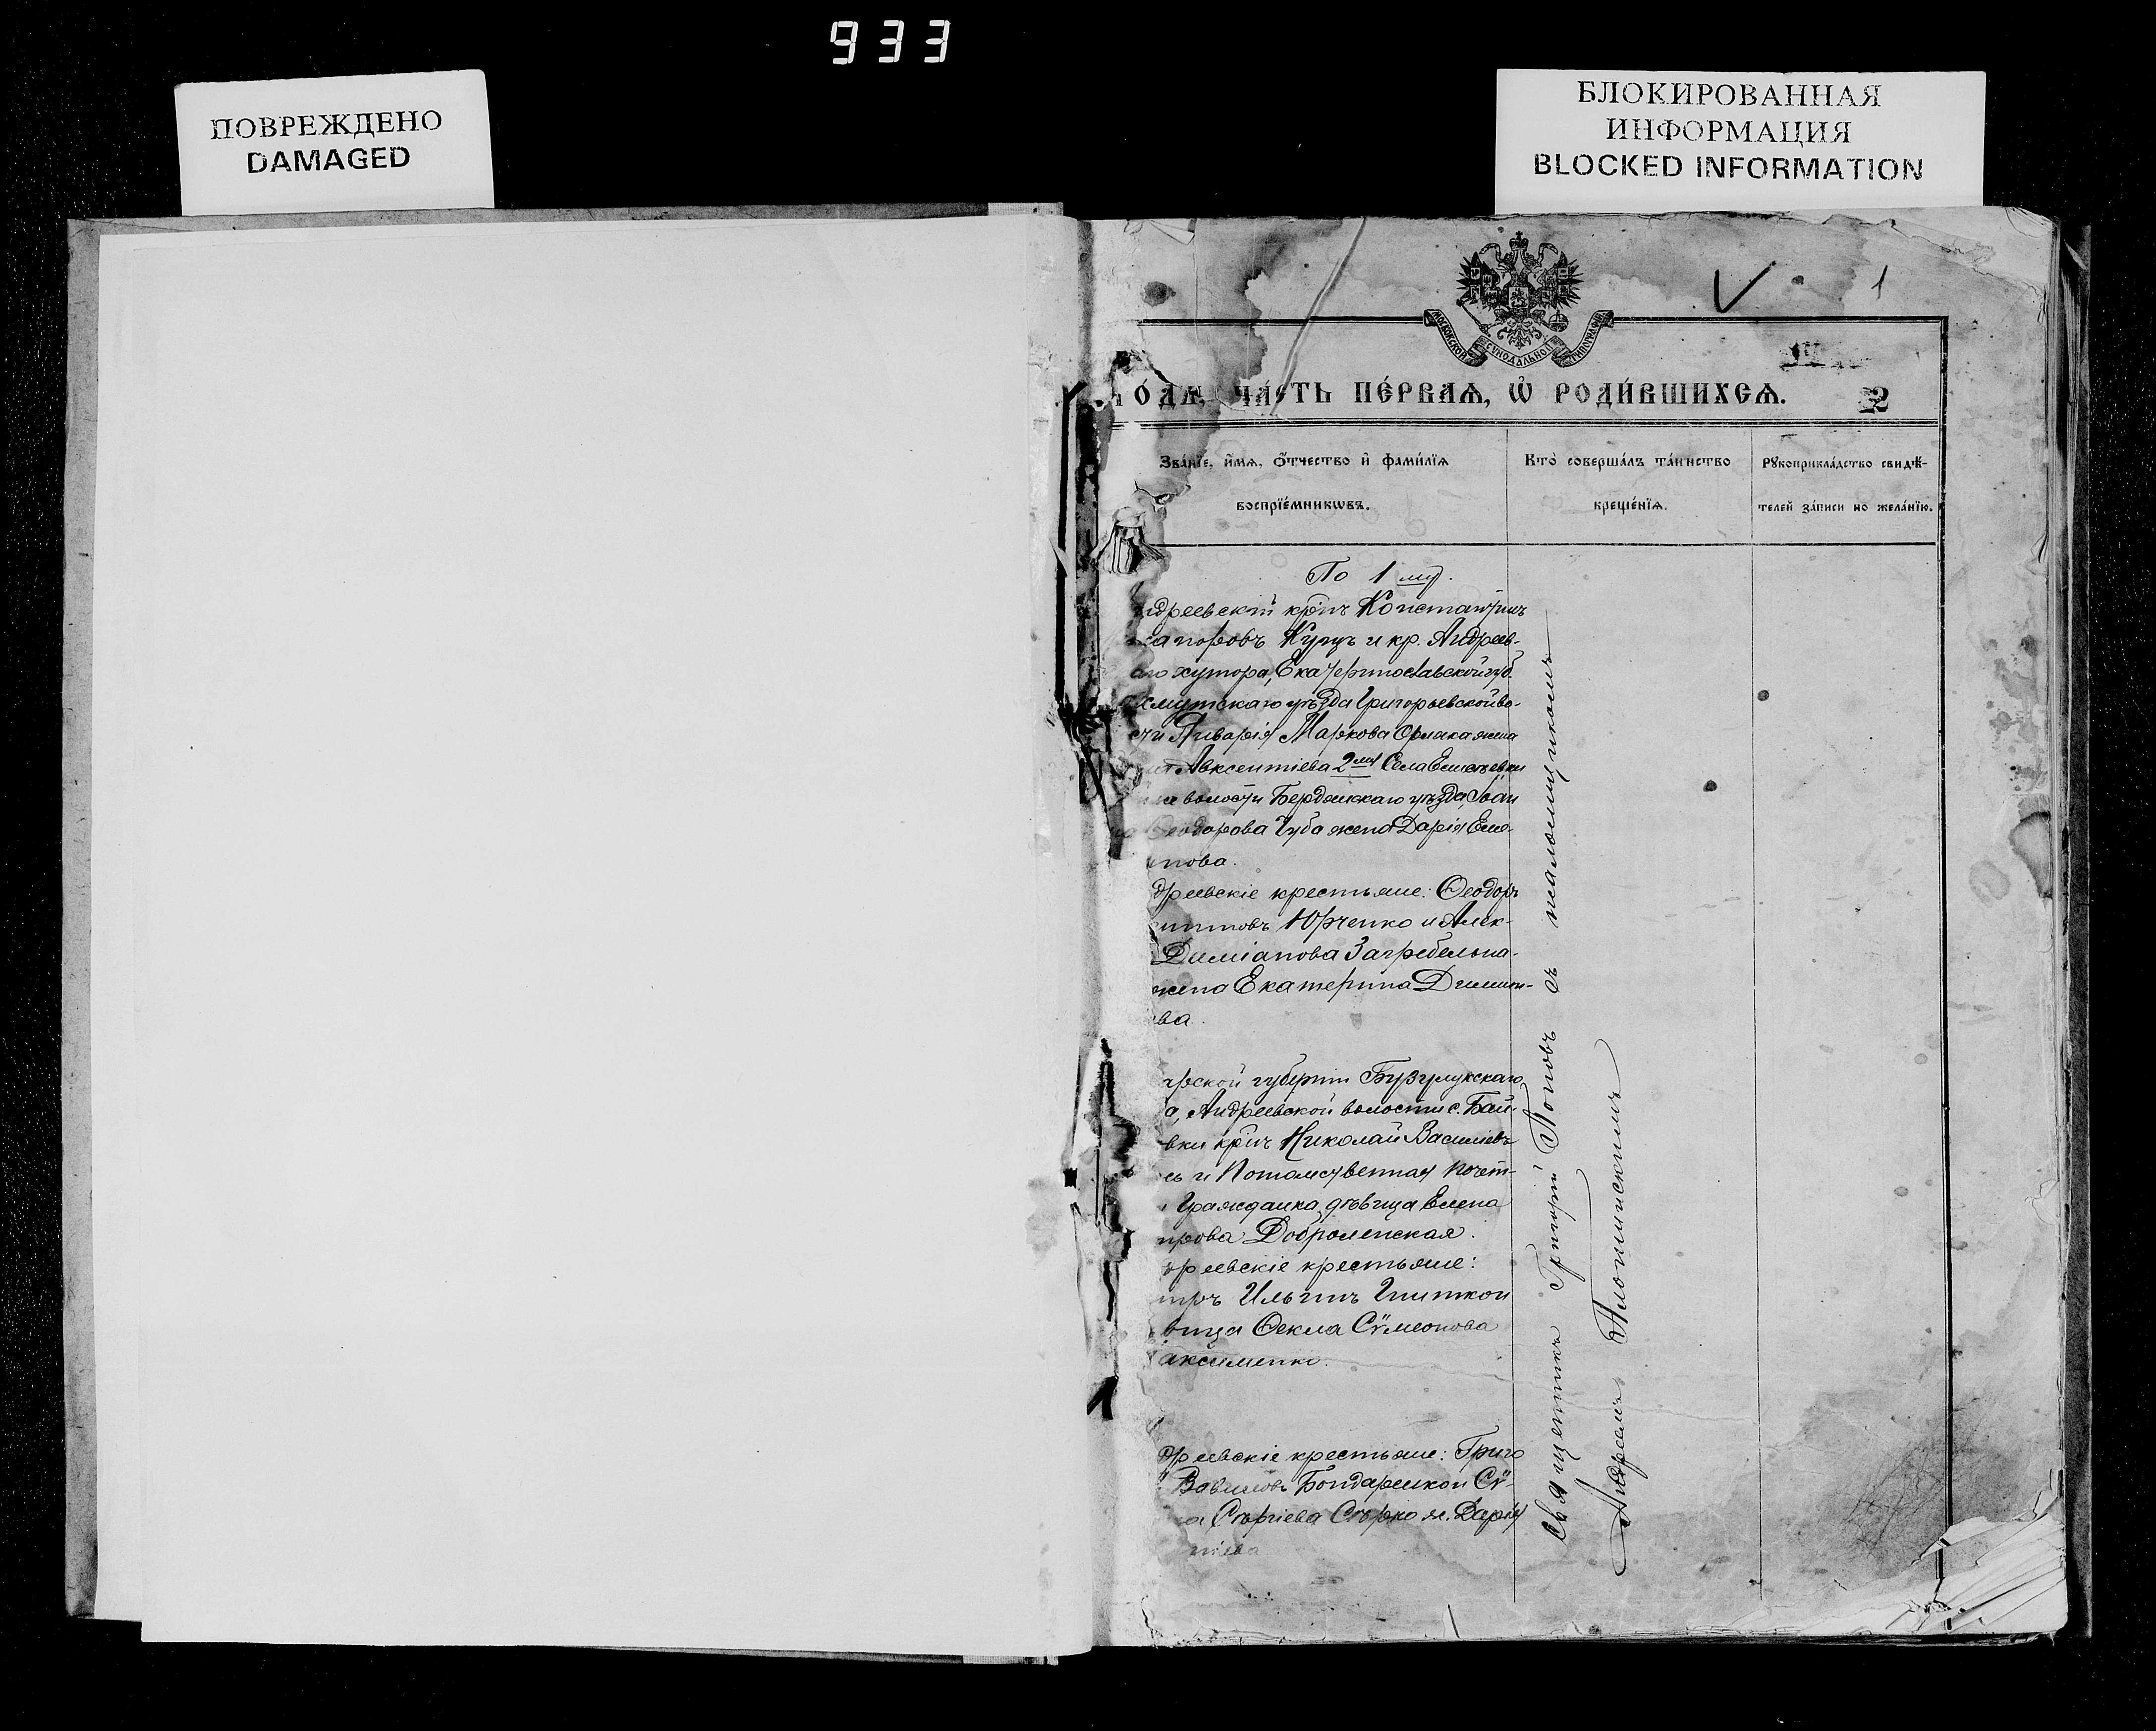 933
ПОВРЕЖДЕНО
DAMAGED
БЛОКИРОВАННАЯ
ИНФОРМАЦИЯ
BLOCKED INFORMATION
1
МОСКОВСКОЙ СѴНОДАЛЬНОЙ ТИПОГРАФІИ
ЧА́СТЬ ПЕ́РВАѦ, Ѽ РОДИ́ВШИХСѦ.
2
Зва́нїе, и҆́мѧ, ѻ҆́тчество и҆ фами́лїѧ
воспрїе́мникѡвъ.
Кто̀ соверша́лъ та́инство
креще́нїѧ.
Рꙋкоприкла́дство свидѣ́-
телей за́писи по жела́нїю.
По 1 му.
дреевскій кр-нъ Константинъ
Куцъ и кр. Андреев-
го хутора, Екатеринославской губ.
хмутскаго уѣзда Григорьевской во-
сти Маркова жена
Авксентіева 2 му Села
волости Бердянскаго уѣзда, Іоан
Ѳеодорова Губа жена Дарія Еме-
нова.
дреевскіе крестьяне: Ѳеодоръ
Юрченко и Алек-
Даміанова Загребельна-
жена Екатерина
ва.
арской губерніи Бузулукскаго
а, Андреевской волости с. Бай-
вки кр-нъ Николай Василіевъ
сь и Потомственная почет-
Гражданка, дѣвица Елена
дрова
дреевскіе крестьяне:
тръ Ильинъ
вица Ѳекла Сѵмеонова
аксименко.
дреевскіе крестьяне: Григо
Вавиловъ Бондаренко и Сѵ-
а Сергіева Сѣрко ж. Дарія
ніева
Священникъ Григорій Поповъ съ псаломщикомъ
Андреемъ Плотинскимъ